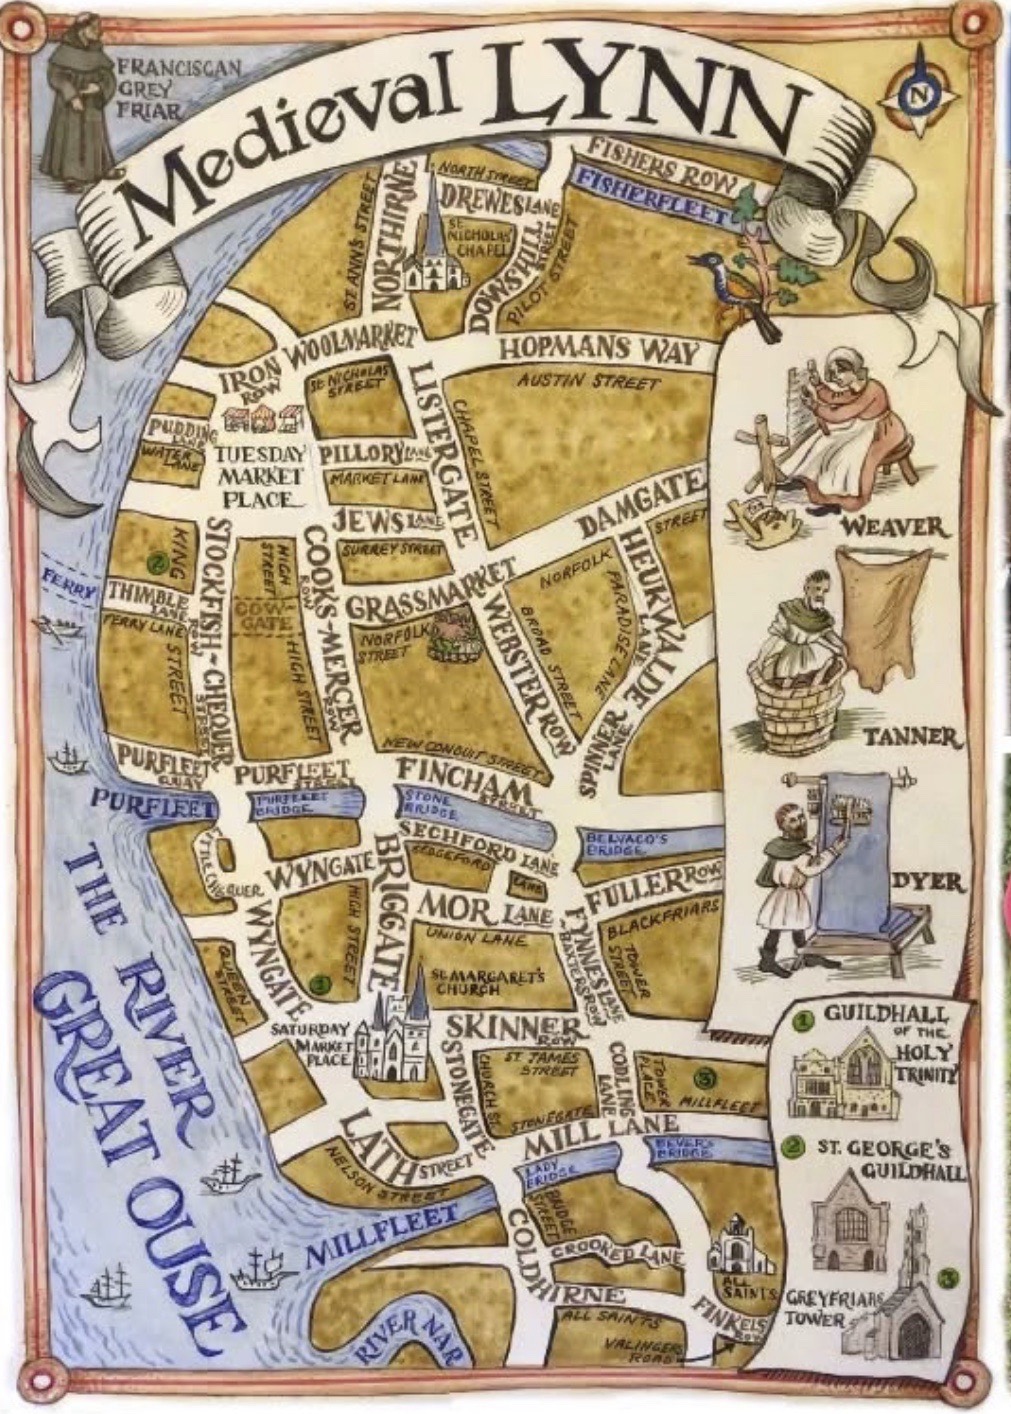 FRANCISCAN
GREY
FRIAR
Medieval LYNN
N
FISHERS ROW
FISHERFLEET
NORTH STREET
DREWES LANE
ST. ANN'S STREET
NORTHIRNE
ST.
NICHOLAS
CHAPEL
DOWSHILL
STREET
PILOT STREET
WOOLMARKET
IRON
ROW
HOPMANS WAY
AUSTIN STREET
ST. NICHOLAS
STREET
LISTERGATE
CHAPEL STREET
PUDDING
LANE
WATER
LANE
TUESDAY
MARKET
PLACE
PILLORY LANE
MARKET LANE
JEWS LANE
SURREY STREET
DAMGATE
STREET
NORFOLK
HEUKWALDE
LANE
PARADISE LANE
KING
STREET
2
STOCKFISH
ROW
CHEQUER
STREET
HIGH
STREET
COW-
GATE
HIGH STREET
COOKS
ROW
MERCER
ROW
GRASSMARKET
NORFOLK
STREET
WEBSTER ROW
BROAD STREET
FERRY
THIMBLE
LANE
FERRY LANE
SPINNER
LANE
NEW CONDUIT STREET
PURFLEET
QUAY
PURFLEET
STREET
FINCHAM
STREET
PURFLEET
PURFLEET
BRIDGE
STONE
BRIDGE
BELVACO'S
BRIDGE
SECHFORD LANE
SEDGEFORD
LANE
WYNGATE
BRIGGATE
FULLER ROW
BLACKFRIARS
MOR LANE
UNION LANE
HIGH STREET
WYNGATE
QUEEN
STREET
1
FYNNES LANE
BAXTERS ROW
TOWER
STREET
ST. MARGARET'S
CHURCH
SATURDAY
MARKET
PLACE
SKINNER
ROW
STONEGATE
CHURCH ST.
ST. JAMES
STREET
CODLING
LANE
TOWER
PLACE
3
MILLFLEET
STONEGATE
MILL LANE
LATH STREET
NELSON STREET
LADY
BRIDGE
BEVERS
BRIDGE
BRIDGE
STREET
MILLFLEET
COLDHIRNE
CROOKED LANE
ALL
SAINTS
ALL SAINTS
FINKELS
ROW
VALINGERS
ROAD
RIVER NAR
THE RIVER
GREAT OUSE
WEAVER
TANNER
DYER
1 GUILDHALL
OF THE
HOLY
TRINITY
2 ST. GEORGE'S
GUILDHALL
3
GREYFRIARS
TOWER